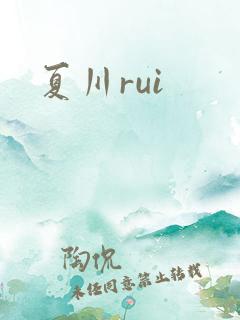 夏川rui
陶倪
未经同意禁止转载